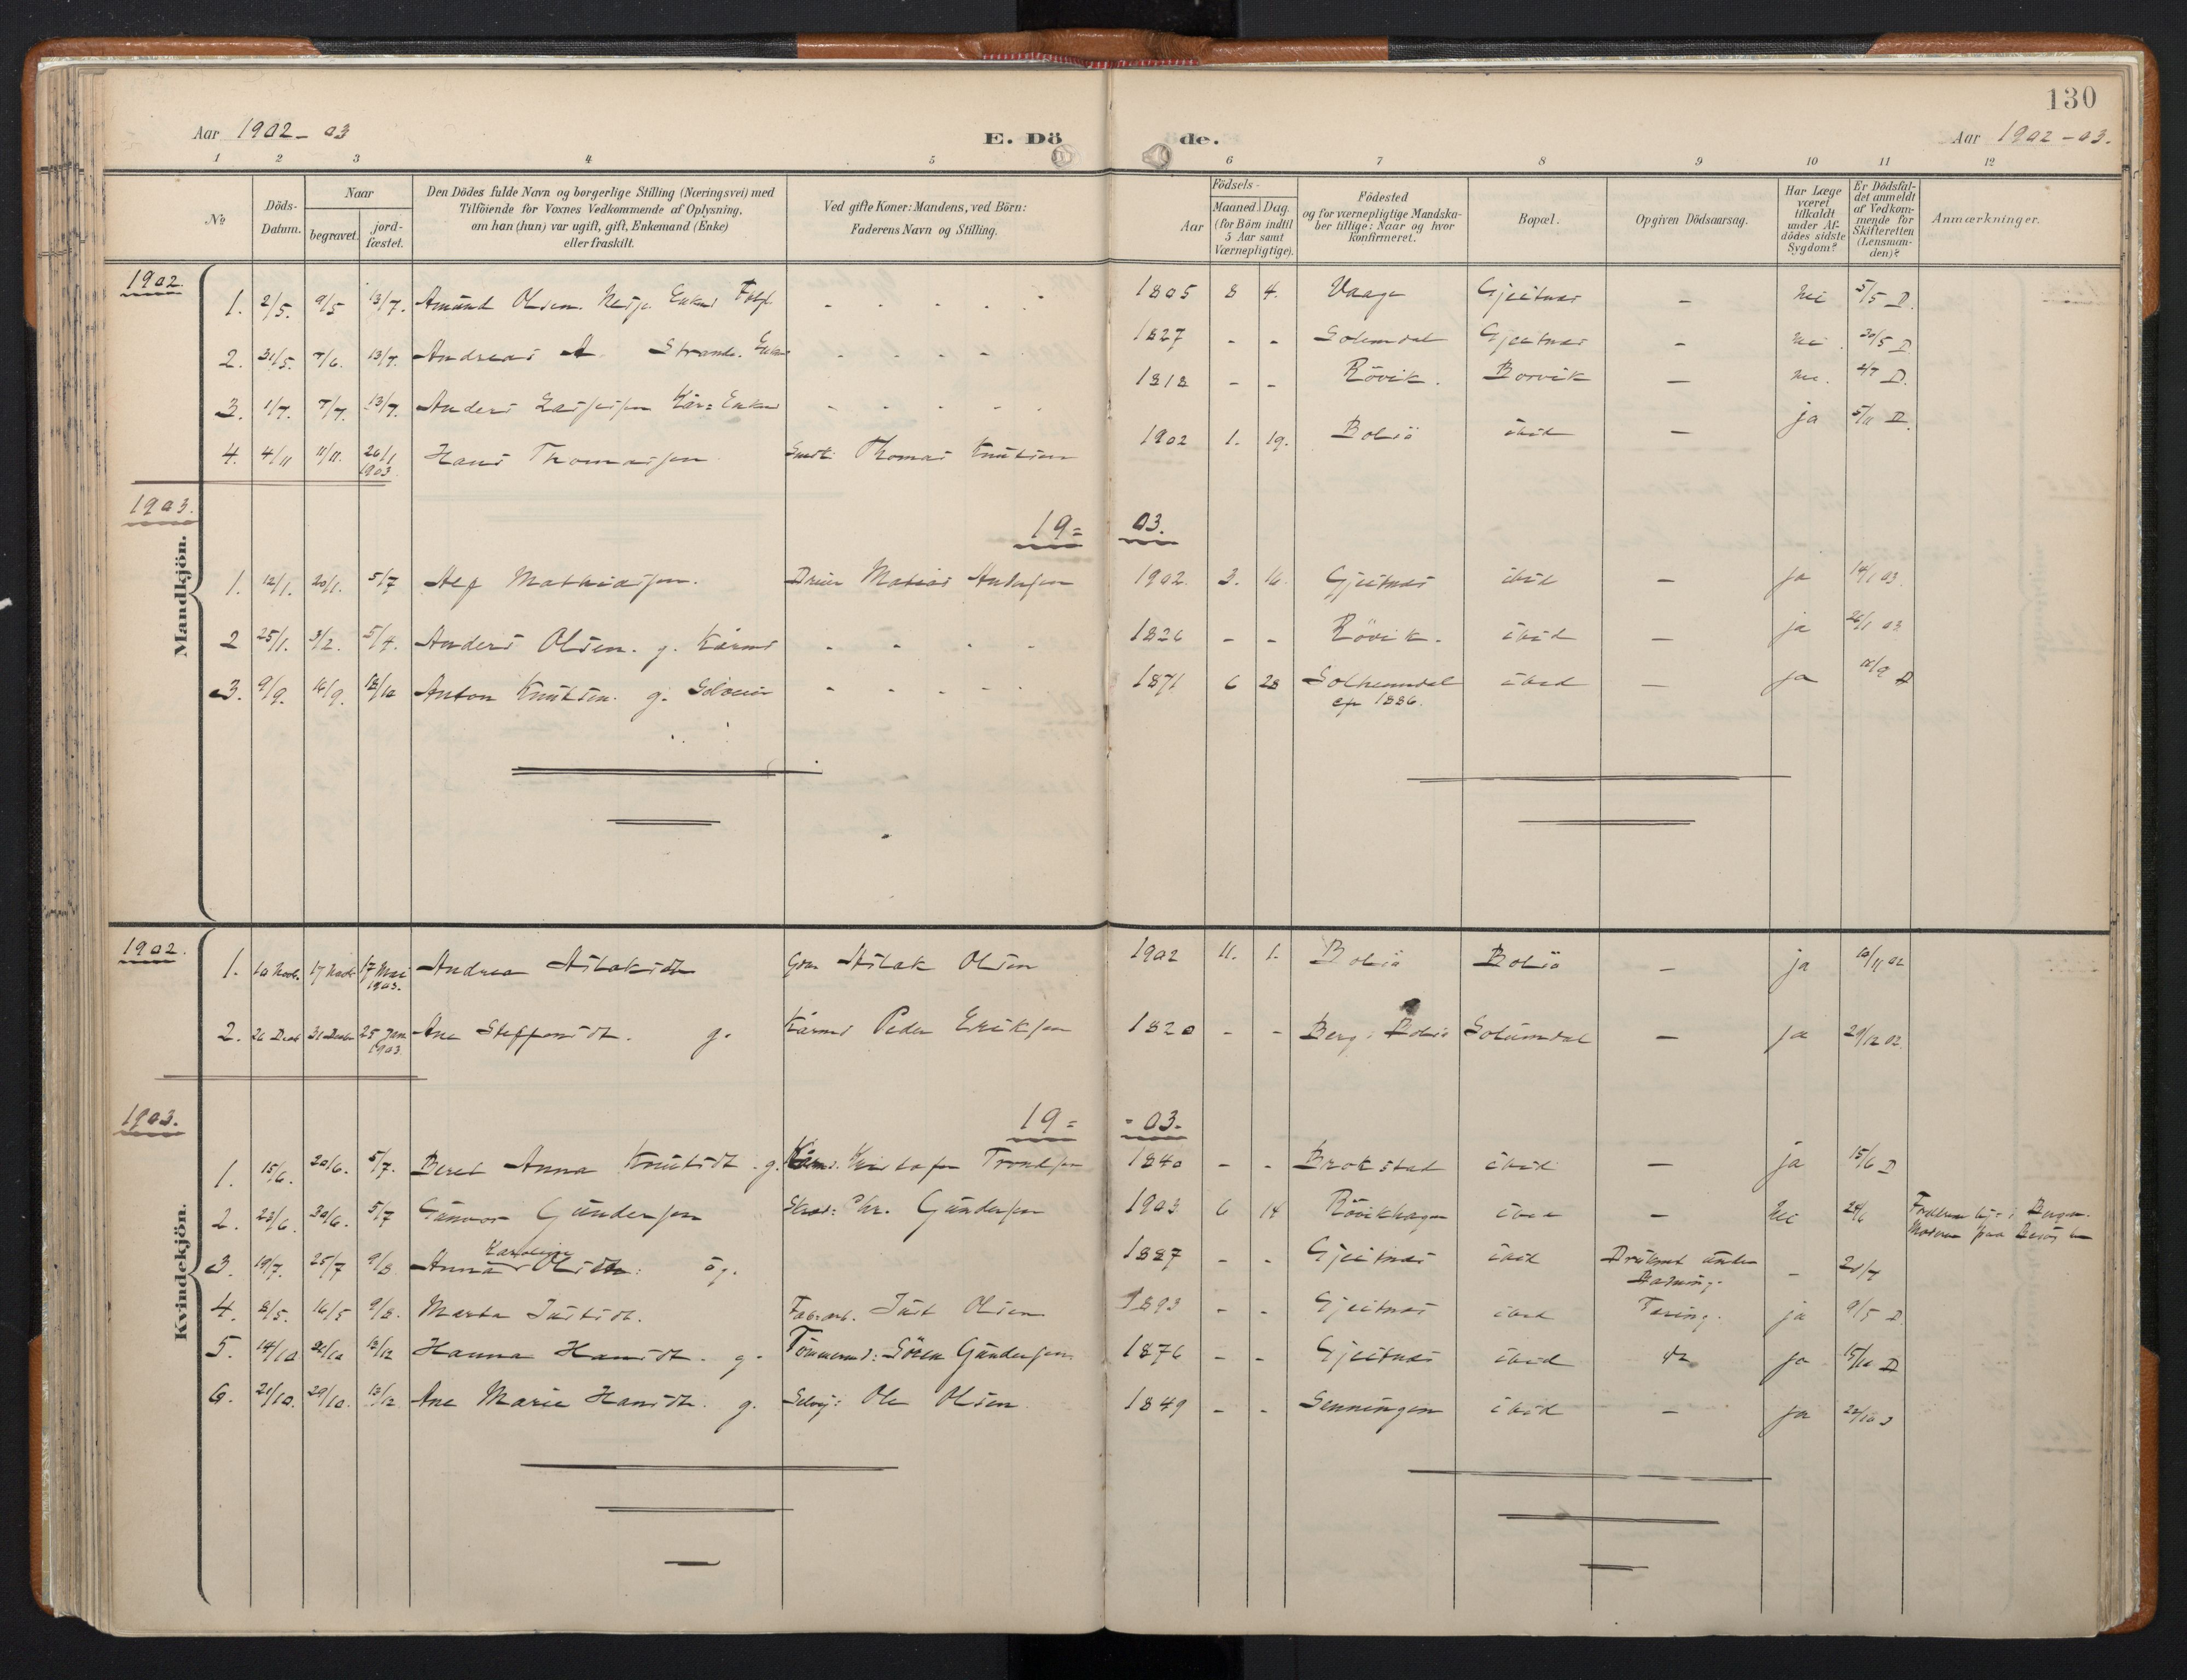 130
Aar 1902-03
E. Dö
de.
Aar 1902-03.
1 2 3 4 5 6 7 8 9 10 11 12
No
Döds-
Datum.
Naar
begravet.
jord-
fæstet.
Den Dödes fulde Navn og borgerlige Stilling (Næringsvei) med
Tilföiende for Voxnes Vedkommende af Oplysning,
om han (hun) var ugift, gift, Enkemand (Enke)
eller fraskilt.
Ved gifte Koner: Mandens, ved Börn:
Faderens Navn og Stilling.
Aar
Födsels-
Maaned. Dag.
(for Börn indtil
5 Aar samt
Værnepligtige).
Födested
og for værnepligtige Mandska-
ber tillige: Naar og hvor
konfirmeret.
Bopæl.
Opgiven Dödsaarsag.
Har Læge
været
tilkaldt
under Af-
dödes sidste
Sygdom?
Er Dödsfal-
det anmeldt
af Vedkom-
mende for
Skifteretten
(Lensman-
den)?
Anmærkninger.
Mandkjön.
1902.
1. 2/5. 9/5 13/7. Amund Olsen - - - - 1805 8 4. Vaage Gjeitnes - nei 5/5 D.
2. 31/5. 7/6. 13/7. Andreas A. Strande. - - - - 1827 - - Solemdal Gjeitnes - nei
3. 1/7. 7/7. 13/7. Anders - - - - 1818 - - Rövik. Borvik - nei. 2/7 D.
4. 4/11 11/11. 26/1 1903 Hans Thomassen Thomas Knutsen 1902 1. 19. Bolsö ibid - ja 5/11 D.
1903.
19= 03.
1. 12/1. 20/1. 5/7 Alf Mathiassen. Mathias 1902. 3. 16. Gjeitnes ibid - ja 14/1 03.
2 25/1. 3/2. 5/4. Anders Olsen. g. Kårmd - - - - 1826 - - Rövik. ibid - ja 26/1 03
3. 9/9. 16/9. 18/10 Anton Knutsen. g. - - - - 1871 6 28 Solhemdal ibid - ja
1886.
Kvindekjön.
1902.
1. 10 Novb. 17 Novb 17 Mai 1903. Andrea Aslaksdtr Aslak Olsen 1902 11. 1. Bolsö Bolsö - ja 10/11 02
2. 26 Decb 31 Decbr 25 Jan 1903. Ane Steffensdtr. g. Kårmd Peder Eriksen 1820 - - Berg i Bolsö Solemdal - ja 29/12 02.
1903.
19= -03.
1. 15/6. 20/6. 5/7. Beret Anna Knutsdtr. g. Kårmd. Kristofer Trondsen 1840 - - Brokstad ibid - ja 15/6 D
2. 23/6. 30/6. 5/7 Gunvor Gundersen Chr. Gundersen 1903 6 14 Rövikhagen ibid - nei 24/6
3. 19/7. 25/7 9/8 Anna Karoline Olsdtr: ug. 1887 - - Gjeitnes ibid Druknet under Badning. - 20/7
4. 8/5. 16/5 9/8. Marta Justsdt. Fabrarb. Just Olsen 1893 - - Gjeitnes ibid Tæring. ja 9/5 D.
5. 14/10 13/12 Hanna Hansdtr. g. Tömmermd: Sören Gundersen 1876 - - Gjeitnes ibid do ja 15/10 D
6. 21/10. 29/10. 13/12 Ane Marie Hansdtr. g. Selvej: Ole Olsen 1849 - - Senningen ibid - ja 22/10